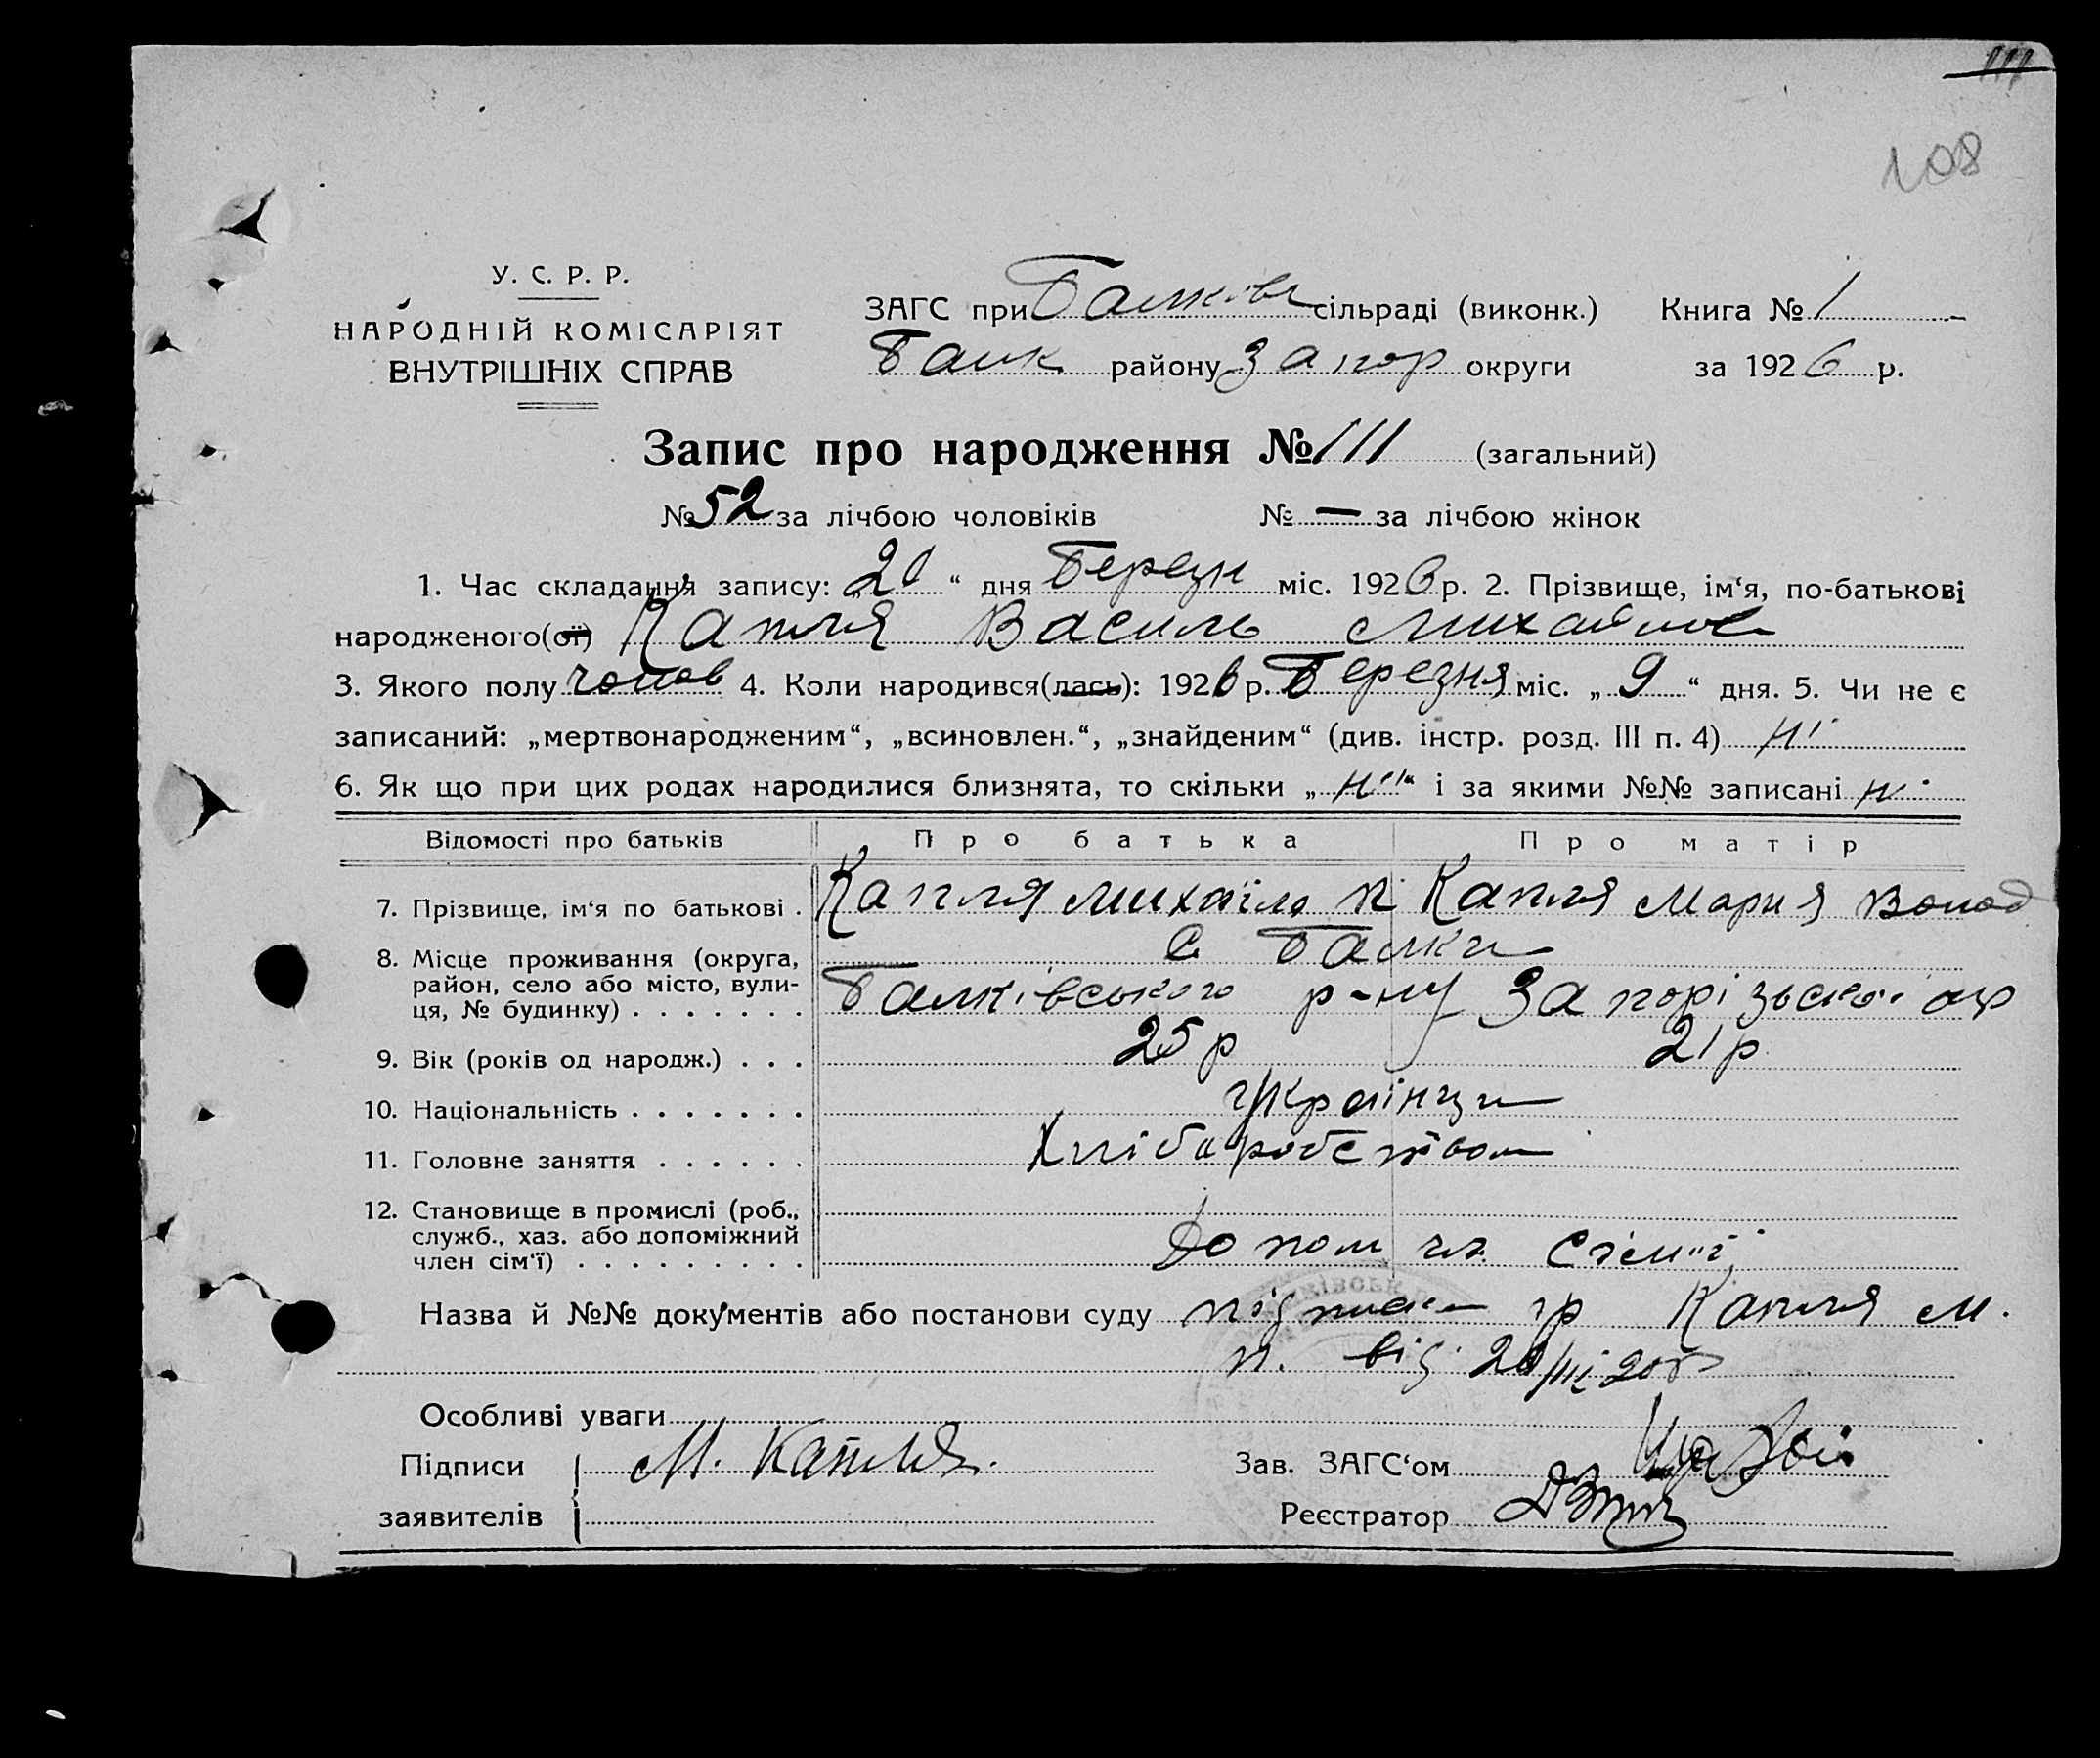 111
108
У. С. Р. Р.
НАРОДНІЙ КОМІСАРІЯТ
ВНУТРІШНІХ СПРАВ
ЗАГС при Балків сільраді (виконк.) Книга № 1
Балк району Запор округи за 1926 р.
Запис про народження № 111 (загальний)
№ 52 за лічбою чоловіків № — за лічбою жінок
1. Час складання запису: „20“ дня Березн міс. 1926 р. 2. Прізвище, ім‘я, по-батькові
народженого(ої) Капля Василь Михайлов
3. Якого полу чолов 4. Коли народився(лась): 1926 р. Березня міс. „9“ дня. 5. Чи не є
записаний: „мертвонародженим“, „всиновлен.“, „знайденим“ (див. інстр. розд. III п. 4) ні
6. Як що при цих родах народилися близнята, то скільки „ні“ і за якими №№ записані ні
Відомості про батьків Про батька Про матір
7. Прізвище, ім‘я по батькові . Капля Михаїло П Капля Мария Волод
8. Місце проживання (округа, с Балки
район, село або місто, вули- Балківського р-ну Запорізьської окр
ця, № будинку) . . . . . . .
9. Вік (років од народж.) . . . 25 р 21 р
10. Національність . . . . . . . українци
11. Головне заняття . . . . . . Хліборобством
12. Становище в промислі (роб.,
служб., хаз. або допоміжний Допом чл. Сім'ї
член сім‘ї) . . . . . . . . .
Назва й №№ документів або постанови суду підписка гр Капля М.
П. від 20/III
Особливі уваги
Підписи М. Капля. Зав. ЗАГС‘ом
заявителів Реєстратор